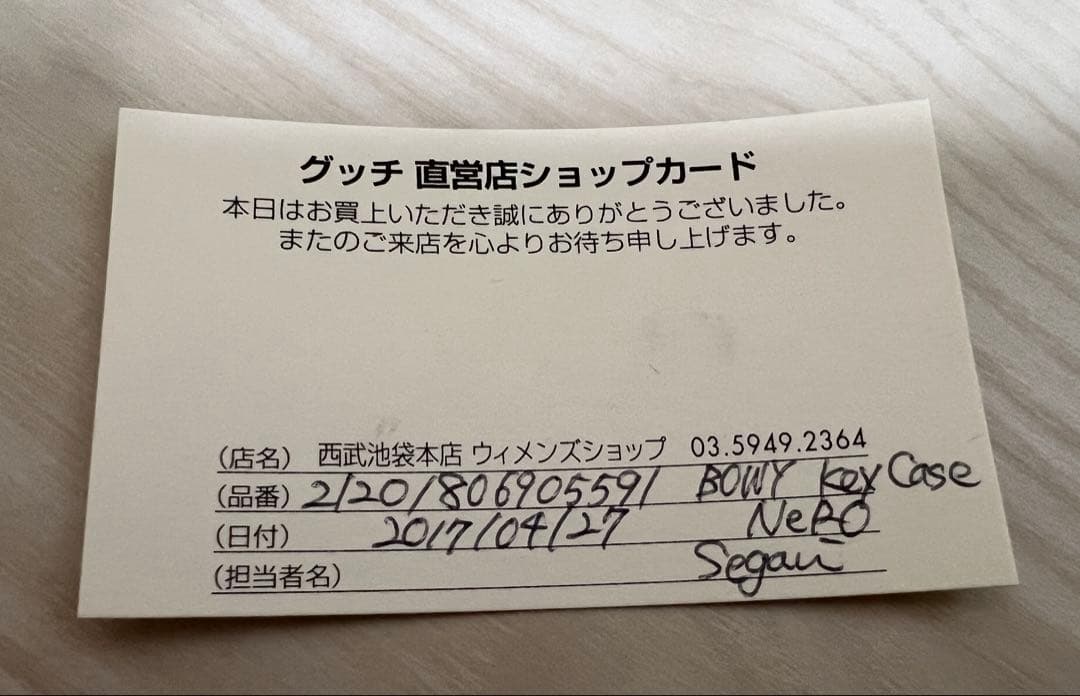 グッチ 直営店ショップカード
本日はお買上いただき誠にありがとうございました。
またのご来店を心よりお待ち申し上げます。
(店名) 西武池袋本店 ウィメンズショップ 03.5949.2364
(品番) 21201806905591 BOWY Key Case
(日付) 2017/04/27 NeRO
(担当者名)